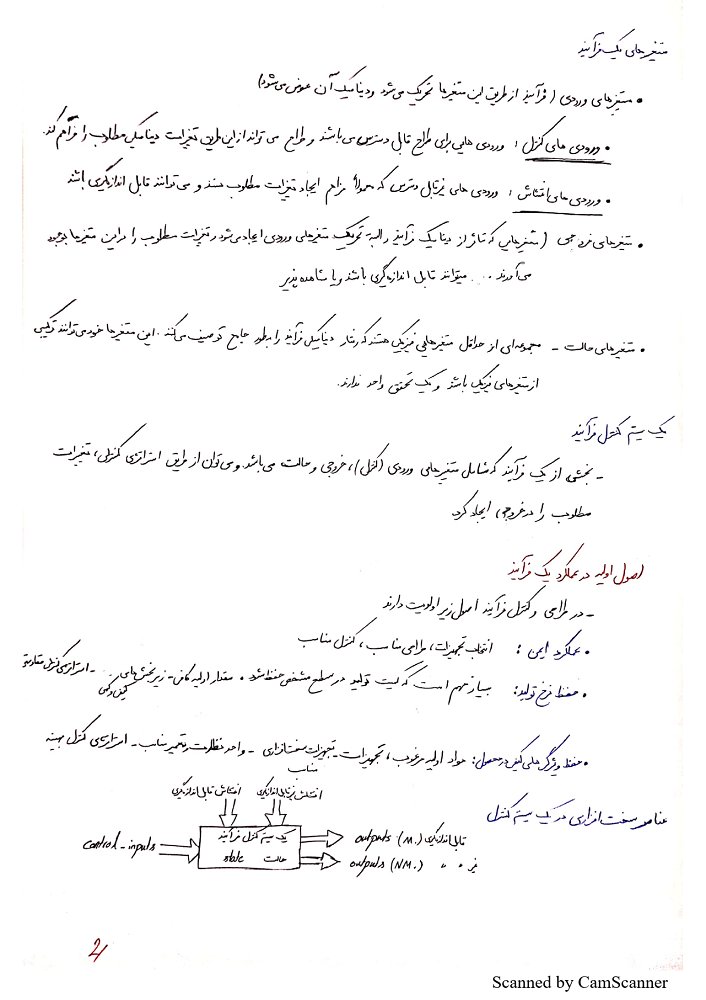 متغیرهای یک فرآیند
• متغیرهای ورودی (فرآیند از طریق این متغیرها تحریک می‌شود و دینامیک آن عوض می‌شود)
• ورودی های کنترل : ورودی هایی برای طراح قابل دسترس می باشند و طراح می تواند از این طریق تغییرات دینامیکی مطلوب را فراهم کند.
• ورودی های اغتشاش : ورودی های غیرقابل دسترس که معمولاً مزاحم ایجاد تغییرات مطلوب هستند و می توانند قابل اندازه‌گیری باشد
• متغیرهای خروجی (متغیرهایی که متاثر از دینامیک فرآیند و البته تحریک متغیرهای ورودی ایجاد می‌شود و تغییرات مطلوب را در این متغیرها بوجود
می آورند ... میتواند قابل اندازه‌گیری باشد و یا مشاهده پذیر
• متغیرهای حالت - مجموعه‌ای از حداقل متغیرهایی فیزیکی هستند که رفتار دینامیکی فرآیند را بطور جامع توصیف می‌کند. این متغیرها خود می‌توانند ترکیبی
از متغیرهای فیزیکی باشد و یک تحقق واحد ندارند.
یک سیستم کنترل فرآیند
- بخشی از یک فرآیند که شامل متغیرهای ورودی (کنترل)، خروجی و حالت می‌باشد و می‌توان از طریق استراتژی کنترلی، تغییرات
مطلوب را در خروجی ایجاد کرد
اصول اولیه در عملکرد یک فرآیند
- در طراحی و کنترل فرآیند اصول زیر اولویت دارند
• عملکرد ایمن : انتخاب تجهیزات، طراحی مناسب، کنترل مناسب
• حفظ نرخ تولید: بسیار مهم است که کمیت تولید در سطح مشخص حفظ شود • مقدار اولیه کافی - زیربخش های - استراتژی کنترل مقاوم
کیفی و کمی
• حفظ ویژگی های کیفی در محصول: مواد اولیه مرغوب، تجهیزات - تجهیزات سخت‌افزاری - واحد نظارت و تعمیر مناسب - استراتژی کنترل بهینه
مناسب
عناصر سخت افزاری در یک سیستم کنترل
اغتشاش غیرقابل اندازه‌گیری اغتشاش قابل اندازه‌گیری
control - inputs
یک سیستم کنترل فرآیند
حالت state
outputs (M.) قابل اندازه‌گیری
outputs (NM.) غیر " "
2
Scanned by CamScanner